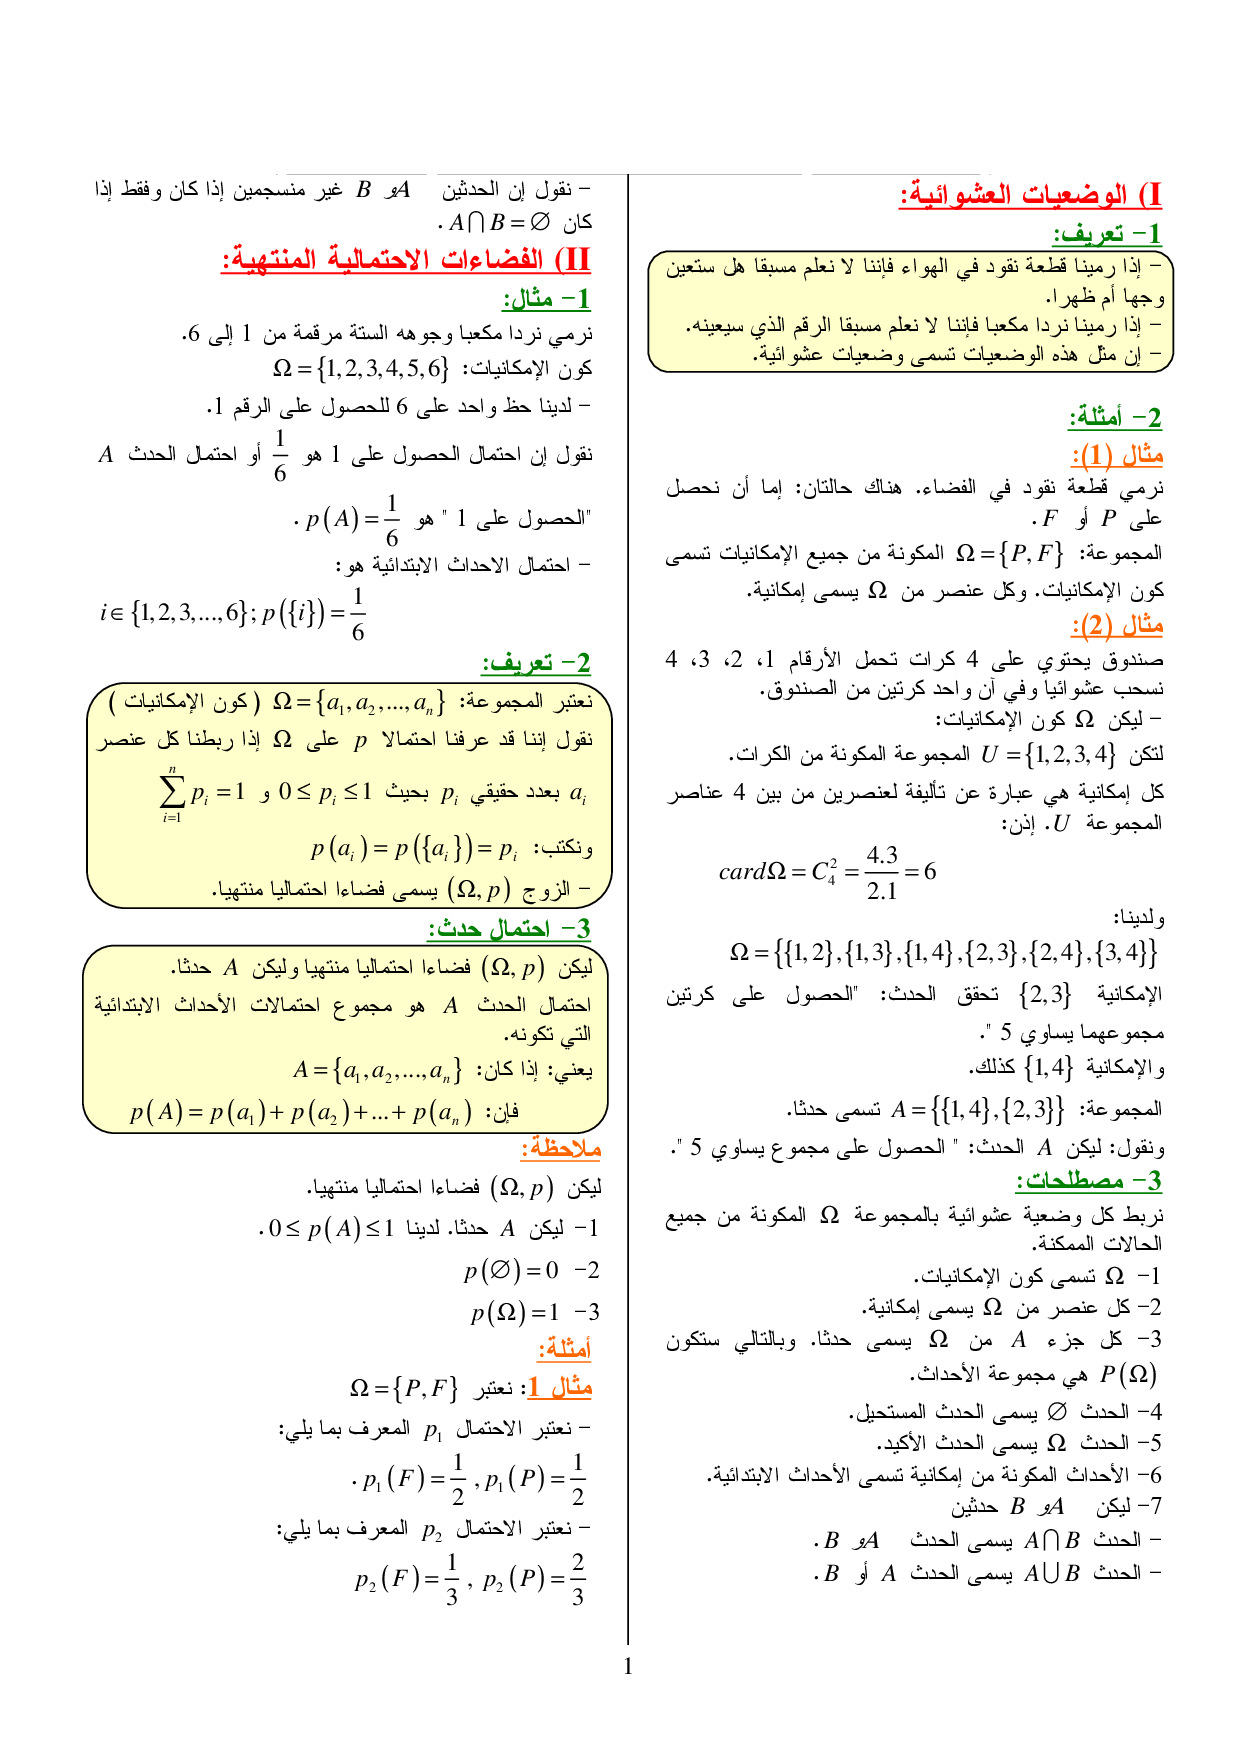 I) الوضعيات العشوائية:
1- تعريف:
- إذا رمينا قطعة نقود في الهواء فإننا لا نعلم مسبقا هل ستعين
وجها أم ظهرا.
- إذا رمينا نردا مكعبا فإننا لا نعلم مسبقا الرقم الذي سيعينه.
- إن مثل هذه الوضعيات تسمى وضعيات عشوائية.
2- أمثلة:
مثال (1):
نرمي قطعة نقود في الفضاء. هناك حالتان: إما أن نحصل
على P أو F .
المجموعة: Ω = {P, F} المكونة من جميع الإمكانيات تسمى
كون الإمكانيات. وكل عنصر من Ω يسمى إمكانية.
مثال (2):
صندوق يحتوي على 4 كرات تحمل الأرقام 1، 2، 3، 4
نسحب عشوائيا وفي آن واحد كرتين من الصندوق.
- ليكن Ω كون الإمكانيات:
لتكن U = {1, 2, 3, 4} المجموعة المكونة من الكرات.
كل إمكانية هي عبارة عن تأليفة لعنصرين من بين 4 عناصر
المجموعة U. إذن:
cardΩ = C₄² = 4.3/2.1 = 6
ولدينا:
Ω = {{1, 2}, {1, 3}, {1, 4}, {2, 3}, {2, 4}, {3, 4}}
الإمكانية {2, 3} تحقق الحدث: "الحصول على كرتين
مجموعهما يساوي 5 ".
والإمكانية {1, 4} كذلك.
المجموعة: A = {{1, 4}, {2, 3}} تسمى حدثا.
ونقول: ليكن A الحدث: " الحصول على مجموع يساوي 5 ".
3- مصطلحات:
نربط كل وضعية عشوائية بالمجموعة Ω المكونة من جميع
الحالات الممكنة.
1- Ω تسمى كون الإمكانيات.
2- كل عنصر من Ω يسمى إمكانية.
3- كل جزء A من Ω يسمى حدثا. وبالتالي ستكون
P(Ω) هي مجموعة الأحداث.
4- الحدث ∅ يسمى الحدث المستحيل.
5- الحدث Ω يسمى الحدث الأكيد.
6- الأحداث المكونة من إمكانية تسمى الأحداث الابتدائية.
7- ليكن A و B حدثين
- الحدث A ∩ B يسمى الحدث A و B .
- الحدث A ∪ B يسمى الحدث A أو B .
- نقول إن الحدثين A و B غير منسجمين إذا كان وفقط إذا
كان A ∩ B = ∅ .
II) الفضاءات الاحتمالية المنتهية:
1- مثال:
نرمي نردا مكعبا وجوهه الستة مرقمة من 1 إلى 6.
كون الإمكانيات: Ω = {1, 2, 3, 4, 5, 6}
- لدينا حظ واحد على 6 للحصول على الرقم 1.
نقول إن احتمال الحصول على 1 هو 1/6 أو احتمال الحدث A
"الحصول على 1 " هو p(A) = 1/6 .
- احتمال الاحداث الابتدائية هو:
i ∈ {1, 2, 3, ..., 6}; p({i}) = 1/6
2- تعريف:
نعتبر المجموعة: Ω = {a₁, a₂, ..., aₙ} ( كون الإمكانيات )
نقول إننا قد عرفنا احتمالا p على Ω إذا ربطنا كل عنصر
aᵢ بعدد حقيقي pᵢ بحيث 0 ≤ pᵢ ≤ 1 و ∑ᵢ₌₁ⁿ pᵢ = 1
ونكتب: p(aᵢ) = p({aᵢ}) = pᵢ
- الزوج (Ω, p) يسمى فضاءا احتماليا منتهيا.
3- احتمال حدث:
ليكن (Ω, p) فضاءا احتماليا منتهيا وليكن A حدثا.
احتمال الحدث A هو مجموع احتمالات الأحداث الابتدائية
التي تكونه.
يعني: إذا كان: A = {a₁, a₂, ..., aₙ}
فإن: p(A) = p(a₁) + p(a₂) + ... + p(aₙ)
ملاحظة:
ليكن (Ω, p) فضاءا احتماليا منتهيا.
1- ليكن A حدثا. لدينا 0 ≤ p(A) ≤ 1 .
2- p(∅) = 0
3- p(Ω) = 1
أمثلة:
مثال 1: نعتبر Ω = {P, F}
- نعتبر الاحتمال p₁ المعرف بما يلي:
p₁(F) = 1/2 , p₁(P) = 1/2 .
- نعتبر الاحتمال p₂ المعرف بما يلي:
p₂(F) = 1/3 , p₂(P) = 2/3
1